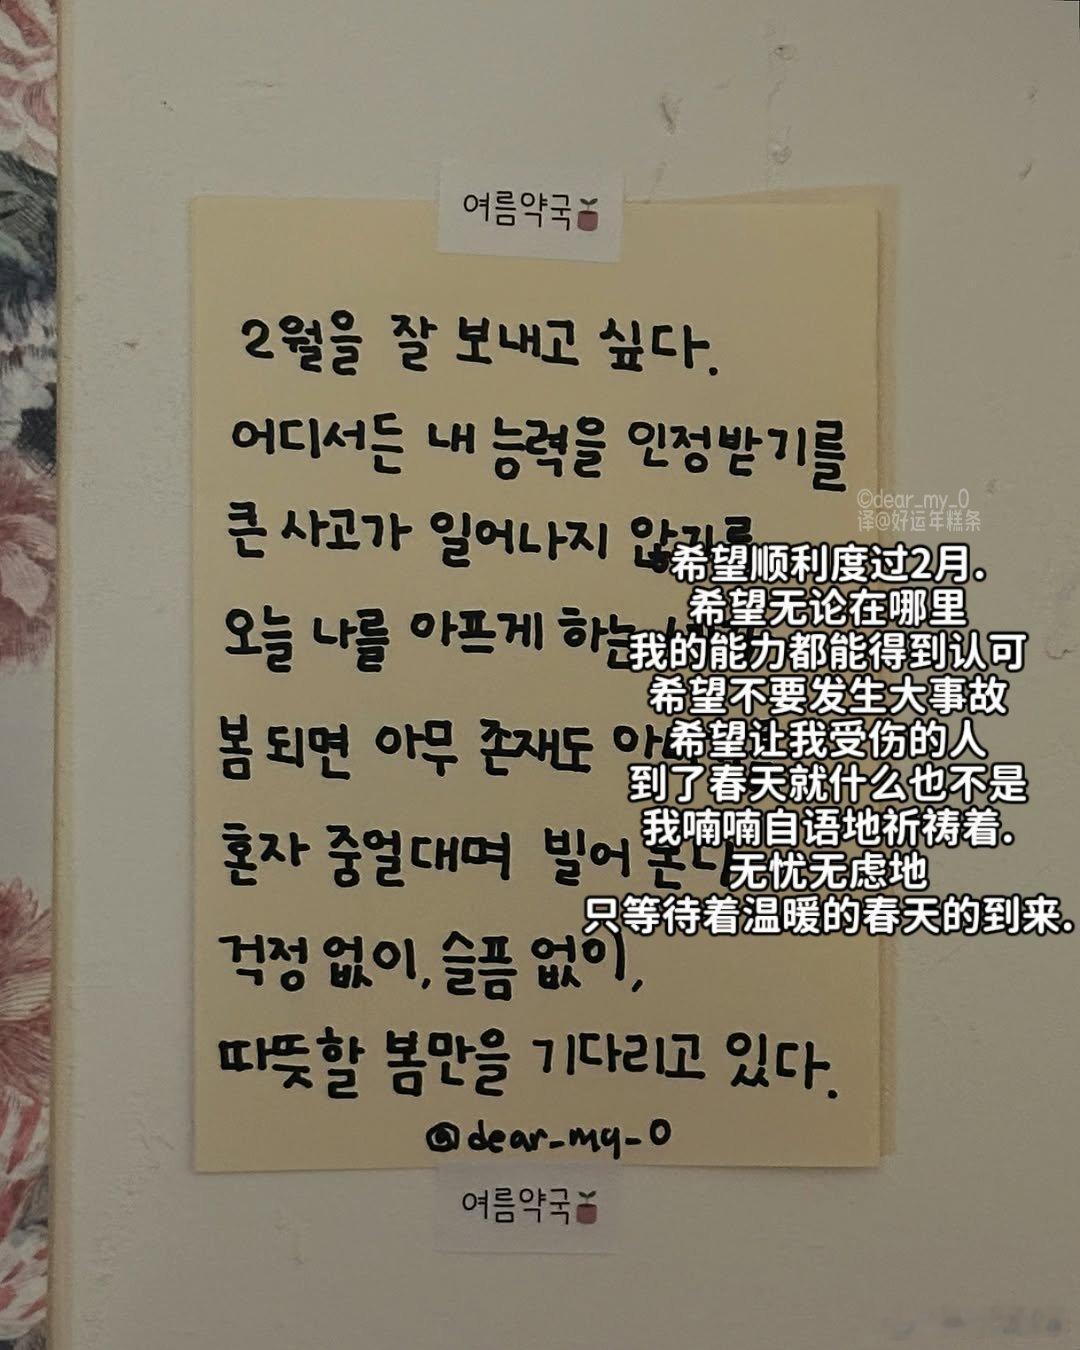 여름약국
2월을 잘 보내고 싶다.
어디서든 내 능력을 인정받기를
큰 사고가 일어나지 않기를
오늘 나를 아프게 하는
봄 되면 아무 존재도
혼자 중얼대며 빌어 본다
걱정 없이, 슬픔 없이,
따뜻할 봄만을 기다리고 있다.
@dear_my_0
여름약국
©dear_my_0
译@好运年糕条
希望顺利度过2月.
希望无论在哪里
我的能力都能得到认可
希望不要发生大事故
希望让我受伤的人
到了春天就什么也不是
我喃喃自语地祈祷着.
无忧无虑地
只等待着温暖的春天的到来.